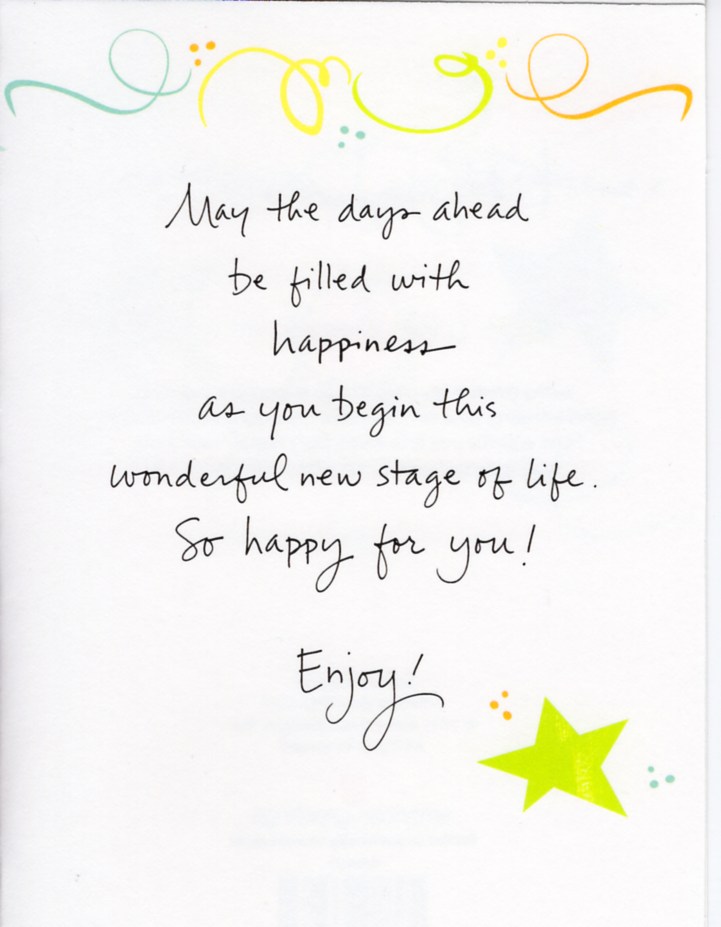 May the days ahead
be filled with
happiness
as you begin this
wonderful new stage of life.
So happy for you!
Enjoy!